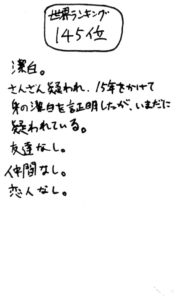 世界ランキング
145位
潔白。
さんざん疑われ、15年をかけて
身の潔白を証明したが、いまだに
疑われている。
友達なし。
仲間なし。
恋人なし。